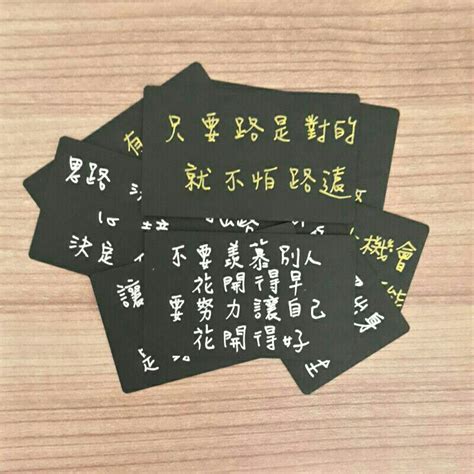 只要路是對的
就不怕路遠
不要羨慕別人
花開得早
要努力讓自己
花開得好
有
思路 決
心
決定
讓
是
機會
出身